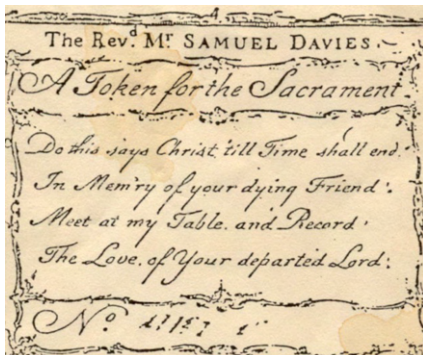 The Revd. Mr. SAMUEL DAVIES
A Token for the Sacrament
Do this says Christ 'till Time shall end.
In Mem'ry of your dying Friend.
Meet at my Table and Record
The Love of Your departed Lord.
No.